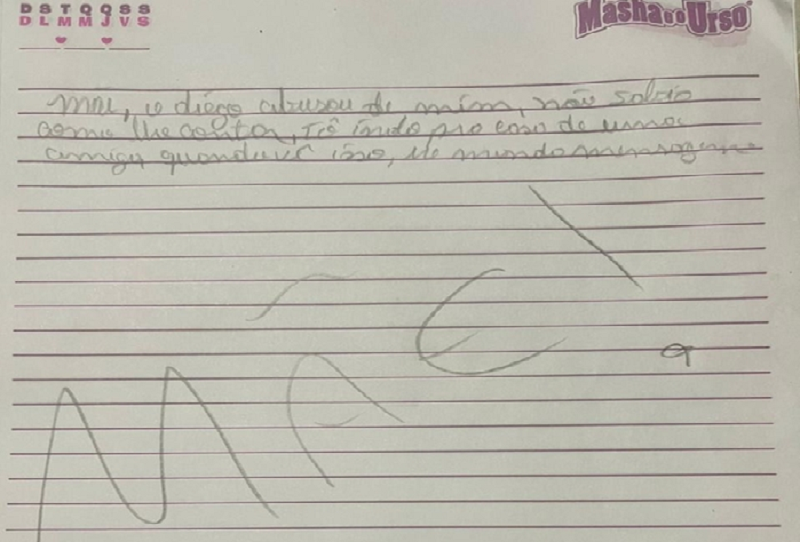 D S T Q Q S S
D L M M J V S
Masha e o Urso
mãe, o diego abusou de mim, não sabia
como lhe contar, tô indo pra casa de uma
amiga quando ver isso, me manda mensagem
MÃE